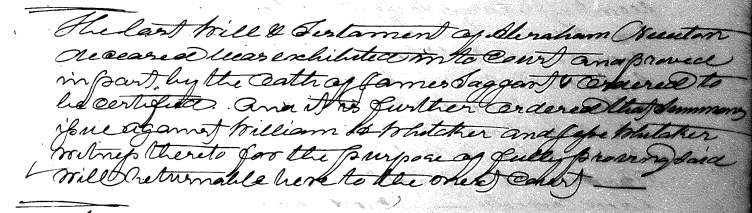 The last Will & Testament of Abraham Newton
deceased was exhibited into Court and proved
in part by the Oath of James Taggart & ordered to
be certified. And it is further ordered that Summons
issue against William Whitcker and Jesse Whitaker
witness thereto for the purpose of fully proving said
Will returnable here to the next Court